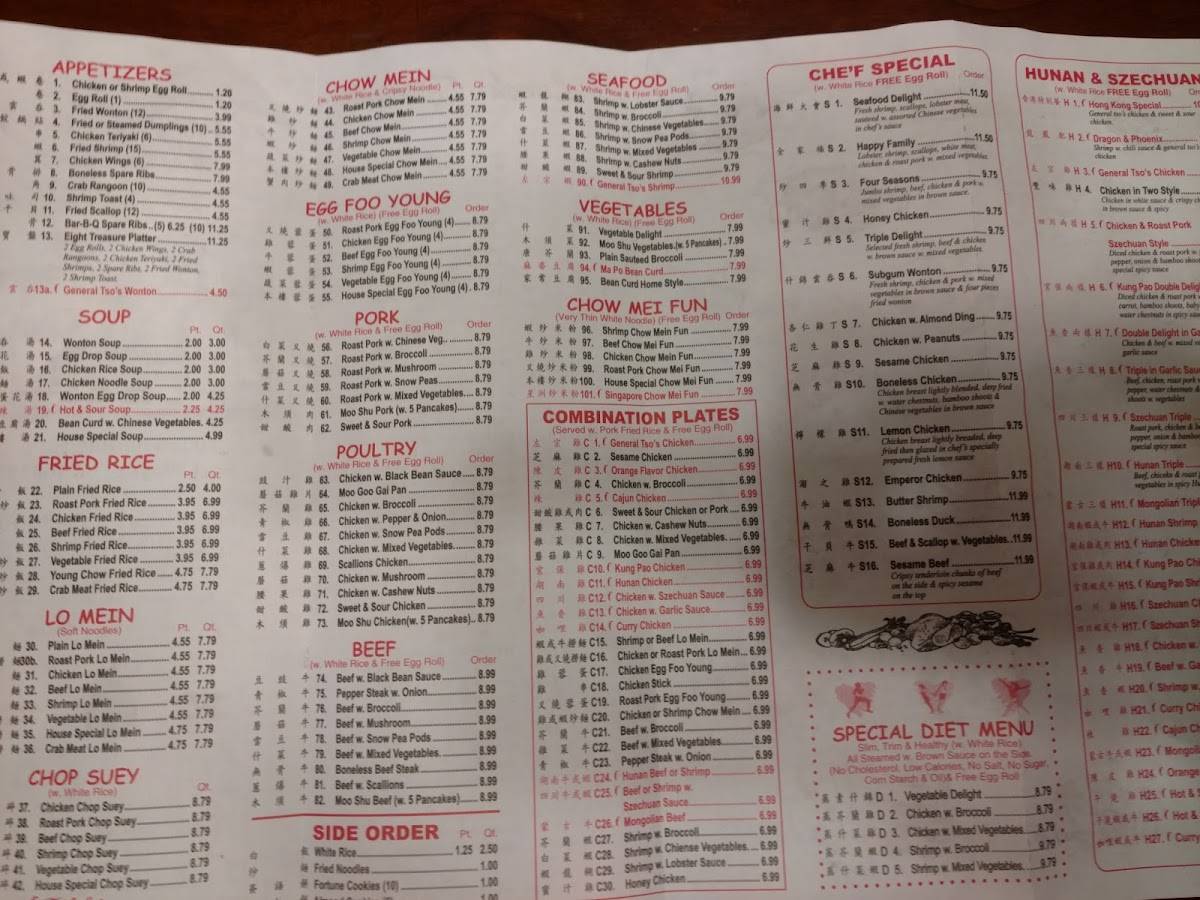 APPETIZERS
1. Chicken or Shrimp Egg Roll 1.20
2. Egg Roll (1) 1.20
3. Fried Wonton (12) 3.99
4. Fried or Steamed Dumplings (10) 5.55
5. Chicken Teriyaki (6) 5.55
6. Fried Shrimp (15) 5.55
7. Chicken Wings (6) 7.99
8. Boneless Spare Ribs 7.99
9. Crab Rangoon (10) 4.55
10. Shrimp Toast (4) 4.55
11. Fried Scallop (12) 4.55
12. Bar-B-Q Spare Ribs (5) 6.25 (10) 11.25
13. Eight Treasure Platter 11.25
2 Egg Rolls, 2 Chicken Wings, 2 Crab
Rangoons, 2 Chicken Teriyaki, 2 Fried
Shrimps, 2 Spare Ribs, 2 Fried Wonton,
2 Shrimp Toast
13a. General Tso's Wonton 4.50
SOUP
Pt. Qt.
14. Wonton Soup 2.00 3.00
15. Egg Drop Soup 2.00 3.00
16. Chicken Rice Soup 2.00 3.00
17. Chicken Noodle Soup 2.00 3.00
18. Wonton Egg Drop Soup 2.00 4.25
19. Hot & Sour Soup 2.25 4.25
20. Bean Curd w. Chinese Vegetables. 4.25
21. House Special Soup 4.99
FRIED RICE
Pt. Qt.
飯 22. Plain Fried Rice 2.50 4.00
飯 23. Roast Pork Fried Rice 3.95 6.99
飯 24. Chicken Fried Rice 3.95 6.99
飯 25. Beef Fried Rice 3.95 6.99
飯 26. Shrimp Fried Rice 3.95 6.99
飯 27. Vegetable Fried Rice 3.95 6.99
飯 28. Young Chow Fried Rice 4.75 7.79
飯 29. Crab Meat Fried Rice 4.75 7.79
LO MEIN
(Soft Noodles)
Pt. Qt.
麵 30. Plain Lo Mein 4.55 7.79
麵 30b. Roast Pork Lo Mein 4.55 7.79
麵 31. Chicken Lo Mein 4.55 7.79
麵 32. Beef Lo Mein 4.55 7.79
麵 33. Shrimp Lo Mein 4.55 7.79
麵 34. Vegetable Lo Mein 4.55 7.79
麵 35. House Special Lo Mein 4.75 7.79
麵 36. Crab Meat Lo Mein 4.75 7.79
CHOP SUEY
(w. White Rice)
Qt.
37. Chicken Chop Suey 8.79
38. Roast Pork Chop Suey 8.79
39. Beef Chop Suey 8.79
40. Shrimp Chop Suey 8.79
41. Vegetable Chop Suey 8.79
42. House Special Chop Suey 8.79
CHOW MEIN
(w. White Rice & Cripsy Noodle)
Pt. Qt.
叉燒炒麵 43. Roast Pork Chow Mein 4.55 7.79
雞炒麵 44. Chicken Chow Mein 4.55 7.79
牛炒麵 45. Beef Chow Mein 4.55 7.79
蝦炒麵 46. Shrimp Chow Mein 4.55 7.79
蔬菜炒麵 47. Vegetable Chow Mein 4.55 7.79
本樓炒麵 48. House Special Chow Mein 4.55 7.79
蟹肉炒麵 49. Crab Meat Chow Mein 4.55 7.79
EGG FOO YOUNG
(w. White Rice) (Free Egg Roll)
Order
叉燒蓉蛋 50. Roast Pork Egg Foo Young (4) 8.79
雞蓉蛋 51. Chicken Egg Foo Young (4) 8.79
牛蓉蛋 52. Beef Egg Foo Young (4) 8.79
蝦蓉蛋 53. Shrimp Egg Foo Young (4) 8.79
蔬菜蓉蛋 54. Vegetable Egg Foo Young (4) 8.79
本樓蓉蛋 55. House Special Egg Foo Young (4) 8.79
PORK
(w. White Rice & Free Egg Roll)
Order
白菜叉燒 56. Roast Pork w. Chinese Veg. 8.79
芥蘭叉燒 57. Roast Pork w. Broccoli 8.79
蘑菇叉燒 58. Roast Pork w. Mushroom 8.79
雪豆叉燒 59. Roast Pork w. Snow Peas 8.79
什菜叉燒 60. Roast Pork w. Mixed Vegetables 8.79
木須肉 61. Moo Shu Pork (w. 5 Pancakes) 8.79
甜酸肉 62. Sweet & Sour Pork 8.79
POULTRY
(w. White Rice & Free Egg Roll)
Order
豉汁雞 63. Chicken w. Black Bean Sauce 8.79
蘑菇雞片 64. Moo Goo Gai Pan 8.79
芥蘭雞 65. Chicken w. Broccoli 8.79
青椒雞 66. Chicken w. Pepper & Onion 8.79
雪豆雞 67. Chicken w. Snow Pea Pods 8.79
什菜雞 68. Chicken w. Mixed Vegetables 8.79
蔥爆雞 69. Scallions Chicken 8.79
蘑菇雞 70. Chicken w. Mushroom 8.79
腰果雞 71. Chicken w. Cashew Nuts 8.79
甜酸雞 72. Sweet & Sour Chicken 8.79
木須雞 73. Moo Shu Chicken(w. 5 Pancakes) 8.79
BEEF
(w. White Rice & Free Egg Roll)
Order
豆豉牛 74. Beef w. Black Bean Sauce 8.99
青椒牛 75. Pepper Steak w. Onion 8.99
芥蘭牛 76. Beef w. Broccoli 8.99
蘑菇牛 77. Beef w. Mushroom 8.99
雪豆牛 78. Beef w. Snow Pea Pods 8.99
什菜牛 79. Beef w. Mixed Vegetables 8.99
無骨牛 80. Boneless Beef Steak 8.99
蔥爆牛 81. Beef w. Scallions 8.99
木須牛 82. Moo Shu Beef (w. 5 Pancakes) 8.99
SIDE ORDER
Pt. Qt.
白飯 White Rice 1.25 2.50
Fried Noodles 1.00
Fortune Cookies (10) 1.00
1.00
SEAFOOD
(w. White Rice & Free Egg Roll)
Order
蝦龍糊 83. Shrimp w. Lobster Sauce 9.79
芥蘭蝦 84. Shrimp w. Broccoli 9.79
白菜蝦 85. Shrimp w. Chinese Vegetables 9.79
雪豆蝦 86. Shrimp w. Snow Pea Pods 9.79
什菜蝦 87. Shrimp w. Mixed Vegetables 9.79
腰果蝦 88. Shrimp w. Cashew Nuts 9.79
甜酸蝦 89. Sweet & Sour Shrimp 9.79
左宗蝦 90. General Tso's Shrimp 10.99
VEGETABLES
(w. White Rice) (Free Egg Roll)
Order
什菜 91. Vegetable Delight 7.99
木須菜 92. Moo Shu Vegetables.(w. 5 Pancakes) 7.99
唐芥蘭 93. Plain Sauteed Broccoli 7.99
麻婆豆腐 94. Ma Po Bean Curd 7.99
家常豆腐 95. Bean Curd Home Style 7.99
CHOW MEI FUN
(Very Thin White Noodle) (Free Egg Roll)
Order
蝦炒米粉 96. Shrimp Chow Mein Fun 7.99
牛炒米粉 97. Beef Chow Mei Fun 7.99
雞炒米粉 98. Chicken Chow Mein Fun 7.99
叉燒炒粉 99. Roast Pork Chow Mei Fun 7.99
本樓炒米粉100. House Special Chow Mei Fun 7.99
星洲炒米粉101. Singapore Chow Mei Fun 7.99
COMBINATION PLATES
(Served w. Pork Fried Rice & Free Egg Roll)
左宗雞C 1. General Tso's Chicken 6.99
芝麻雞C 2. Sesame Chicken 6.99
陳皮雞C 3. Orange Flavor Chicken 6.99
芥蘭雞C 4. Chicken w. Broccoli 6.99
辣雞C 5. Cajun Chicken 6.99
甜酸雞或肉C 6. Sweet & Sour Chicken or Pork 6.99
腰果雞C 7. Chicken w. Cashew Nuts 6.99
雜菜雞C 8. Chicken w. Mixed Vegetables 6.99
蘑菇雞片C 9. Moo Goo Gai Pan 6.99
宮保雞C10. Kung Pao Chicken 6.99
湖南雞C11. Hunan Chicken 6.99
四川雞C12. Chicken w. Szechuan Sauce 6.99
魚香雞C13. Chicken w. Garlic Sauce 6.99
咖哩雞C14. Curry Chicken 6.99
蝦或牛撈麵C15. Shrimp or Beef Lo Mein 6.99
雞或叉燒撈麵C16. Chicken or Roast Pork Lo Mein 6.99
雞蓉蛋C17. Chicken Egg Foo Young 6.99
雞串C18. Chicken Stick 6.99
叉燒蓉蛋C19. Roast Pork Egg Foo Young 6.99
雞或蝦炒麵C20. Chicken or Shrimp Chow Mein 6.99
芥蘭牛C21. Beef w. Broccoli 6.99
雜菜牛C22. Beef w. Mixed Vegetables 6.99
青椒牛C23. Pepper Steak w. Onion 6.99
湖南牛或蝦C24. Hunan Beef or Shrimp 6.99
四川牛或蝦C25. Beef or Shrimp w.
Szechuan Sauce 6.99
蒙古牛C26. Mongolian Beef 6.99
芥蘭蝦C27. Shrimp w. Broccoli 6.99
白菜蝦C28. Shrimp w. Chiense Vegetables 6.99
蝦龍糊C29. Shrimp w. Lobster Sauce 6.99
蜜汁雞C30. Honey Chicken 6.99
CHE'F SPECIAL
(w. White Rice FREE Egg Roll)
Order
海鮮大會S 1. Seafood Delight 11.50
Fresh shrimp, scallops, lobster meat,
sauteed w. assorted Chinese vegetables
in chef's sauce
全家福S 2. Happy Family 11.50
Lobster, shrimp, scallop, white meat,
chicken & roast pork w. mixed vegetables
炒四季S 3. Four Seasons 9.75
Jumbo shrimp, beef, chicken & pork w.
mixed vegetables in brown sauce
蜜汁雞S 4. Honey Chicken 9.75
炒三鮮S 5. Triple Delight 9.75
Selected fresh shrimp, beef & chicken
w. brown sauce w. mixed vegetables
什錦雲吞S 6. Subgum Wonton 9.75
Fresh shrimp, chicken & pork w. mixed
vegetables in brown sauce & four pieces
fried wonton
杏仁雞丁S 7. Chicken w. Almond Ding 9.75
花生雞S 8. Chicken w. Peanuts 9.75
芝麻雞S 9. Sesame Chicken 9.75
無骨雞S10. Boneless Chicken 9.75
Chicken breast lightly blended, deep fried
w. water chestnuts, bamboo shoots &
Chinese vegetables in brown sauce
檸檬雞S11. Lemon Chicken 9.75
Chicken breast lightly breaded, deep
fried then glazed in chef's specially
prepared fresh lemon sauce
湘之雞S12. Emperor Chicken 9.75
牛油蝦S13. Butter Shrimp 11.99
無骨鴨S14. Boneless Duck 11.99
干貝牛S15. Beef & Scallop w. Vegetables 11.99
芝麻牛S16. Sesame Beef 11.99
Cripsy tenderloin chunks of beef
on the side & spicy sesame
on the top
SPECIAL DIET MENU
Slim, Trim & Healthy (w. White Rice)
All Steamed w. Brown Sauce on the Side
(No Cholesterol, Low Calories, No Salt, No Sugar,
Corn Starch & Oil)& Free Egg Roll
蒸素什錦D 1. Vegetable Delight 8.79
蒸芥蘭雞D 2. Chicken w. Broccoli 8.79
蒸什菜雞D 3. Chicken w. Mixed Vegetables 8.79
蒸芥蘭蝦D 4. Shrimp w. Broccoli 9.79
蒸什菜蝦D 5. Shrimp w. Mixed Vegetables 9.79
HUNAN & SZECHUAN
(w. White Rice FREE Egg Roll)
H 1. Hong Kong Special
General tso's chicken & sweet & sour
chicken
龍鳳配H 2. Dragon & Phoenix
Shrimp w. chili sauce & general tso's
chicken
左宗雞H 3. General Tso's Chicken
雙味雞H 4. Chicken in Two Style
Chicken in white sauce & crispy
in brown sauce & spicy
H 5. Chicken & Roast Pork
Szechuan Style
Diced chicken & roast pork w.
pepper, onion & bamboo shoots
special spicy sauce
宮保兩樣H 6. Kung Pao Double Delight
Diced chicken & roast pork
carrot, bamboo shoots, baby
water chestnuts in spicy sauce
魚香兩樣H 7. Double Delight in Ga
Chicken & beef w. mixed
garlic sauce
魚香三樣H 8. Triple in Garlic Sauce
Beef, chicken, roast pork
pepper, water chestnuts &
shoots w. vegetables
四川三樣H 9. Szechuan Triple
Roast pork, chicken & be
pepper, onion & bamboo
special spicy sauce
湖南三樣H10. Hunan Triple
Beef, chicken & roast
vegetables in spicy H
H11. Mongolian Triple
H12. Hunan Shrimp
H13. Hunan Chicken
H14. Kung Pao Chi
H15. Kung Pao Shr
H16. Szechuan Ch
H17. Szechuan Sh
H18. Chicken w. G
H19. Beef w. Ga
H20. Shrimp w.
H21. Curry Chi
H22. Cajun Ch
H23. Mongol
H24. Orange
H25. Hot & S
H26. Hot &
H27. Curry